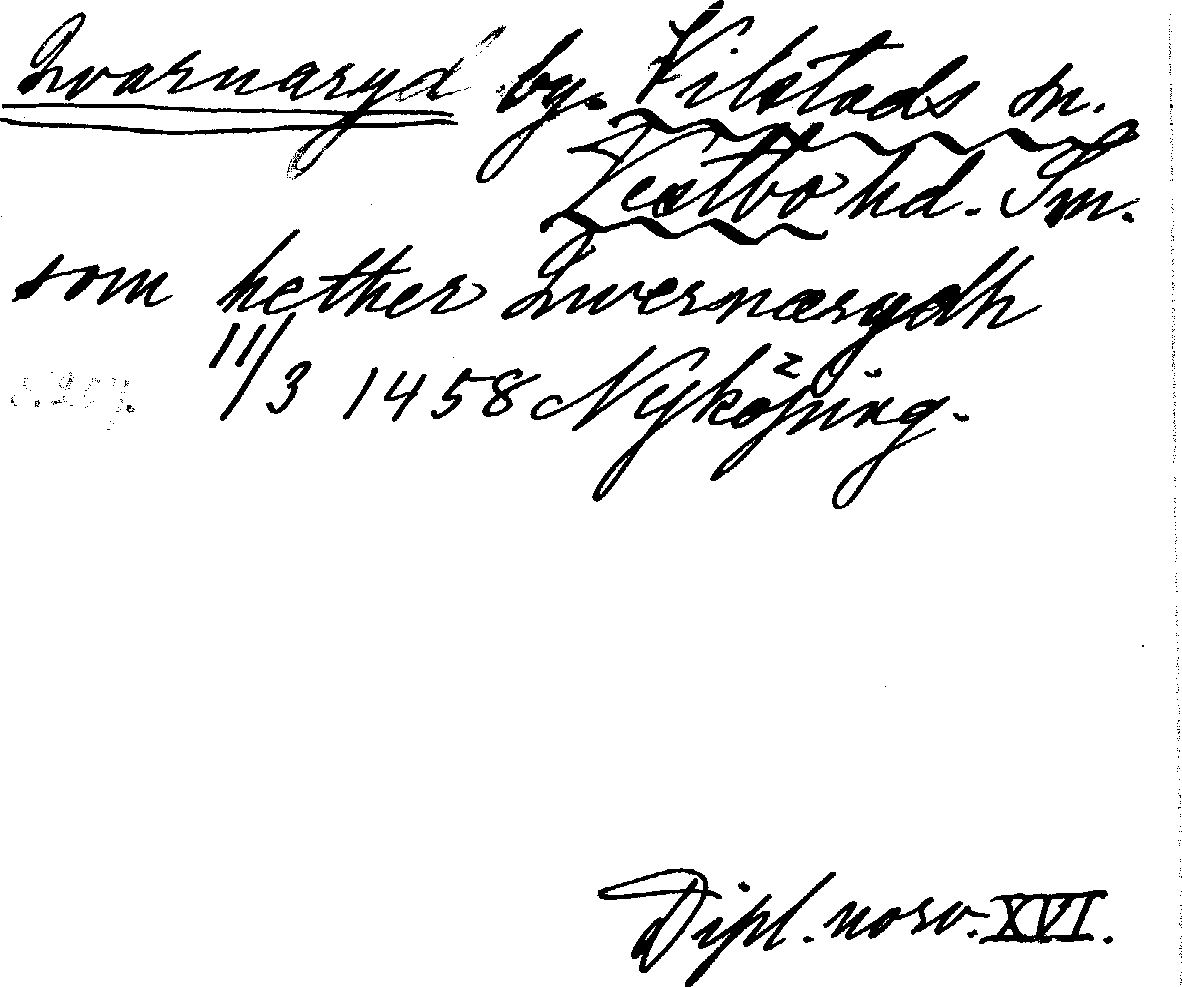 Qvarnaryd by. Vilstads sn.
Vestbo hd. Sm.
som hether Quernærydh
s. 207. 11/3 1458 Nyköping.
Dipl. norv. XVI.